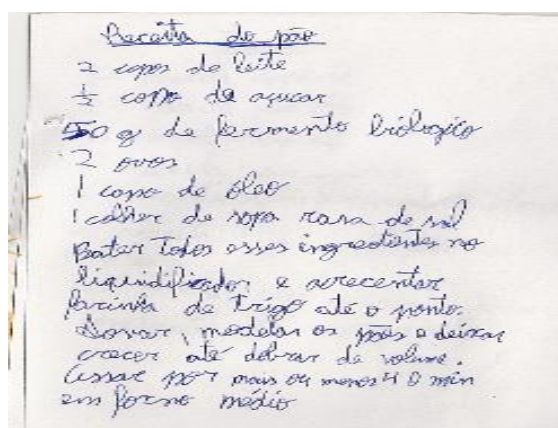 Receita do pão
2 copos de leite
½ copo de açucar
50 g de fermento biologico
2 ovos
1 copo de óleo
1 colher de sopa rasa de sal
Bater todos esses ingredientes no
liquidificador e acrecentar
farinha de trigo até o ponto.
Sovar, modelar os pães e deixar
crecer até dobrar de volume.
Assar por mais ou menos 40 min
em forno médio